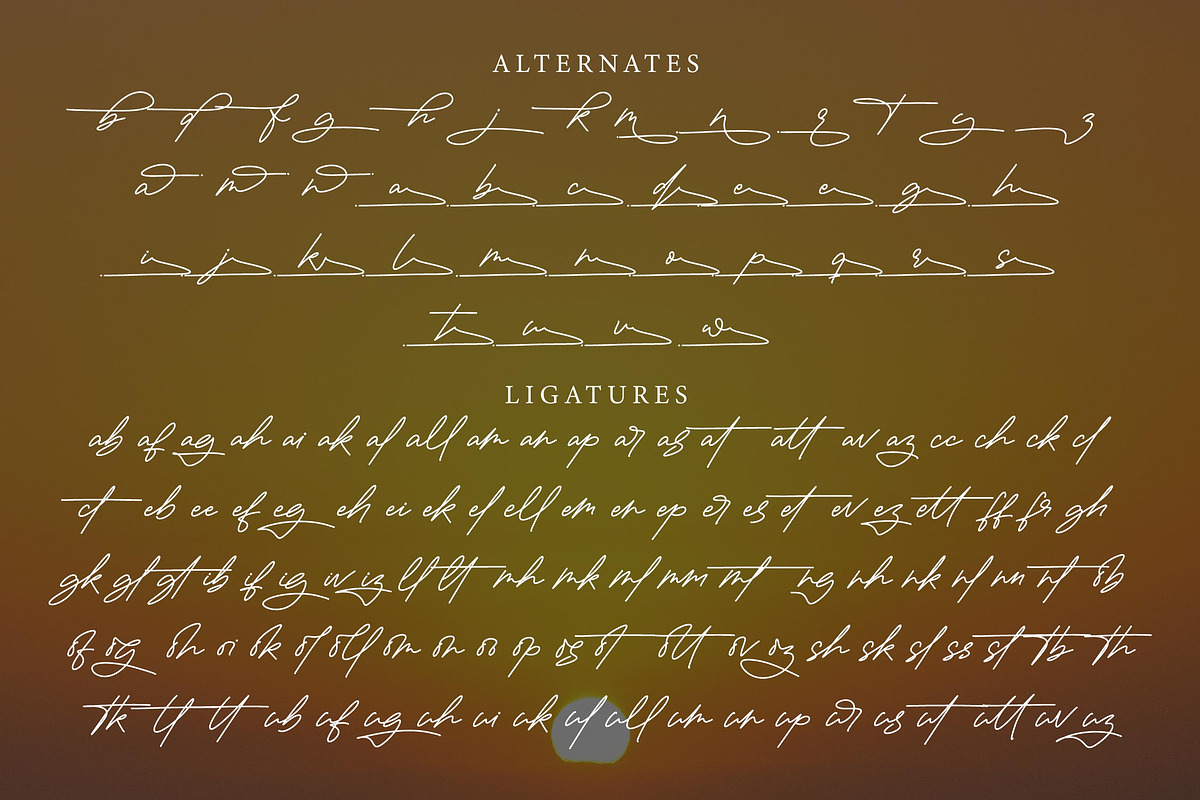 ALTERNATES
b d f g h j k m n q T y z
a m n a b c d e e g h
i j k l m n o p q r s
t u v w
LIGATURES
ab af ag ah ai ak al all am an ap ar as at att av az cc ch ck cl
ct eb ee ef eg eh ei ek el ell em en ep er es et ev ez ett ff fr gh
gk gl gt ib if ig iv iz ll tt mh mk ml mm mt ng nh nk nl nn nt ob
of og oh oi ok ol oll om on oo op os ot ott ov oz sh sk sl ss st Tb Th
Tk tl tt ub uf ug uh ui uk ul ull um un up ur us ut utt uv uz